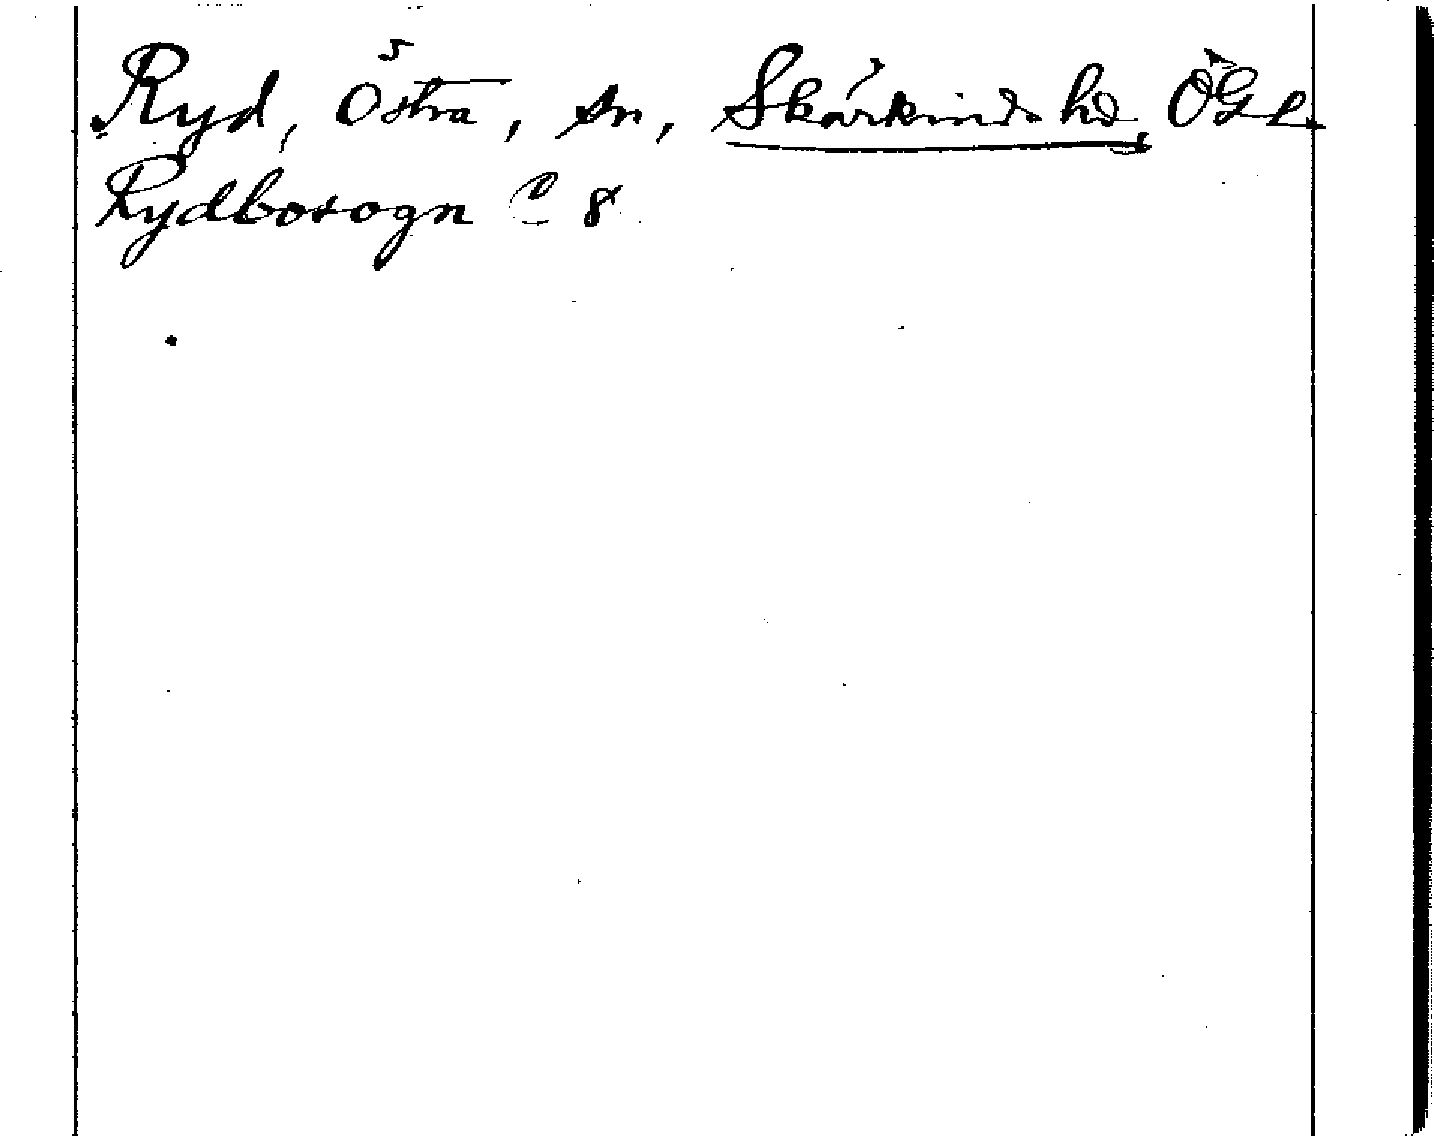 Ryd, Östra, sn, Skärkinds hd ÖGL
Rydbosogn C 8